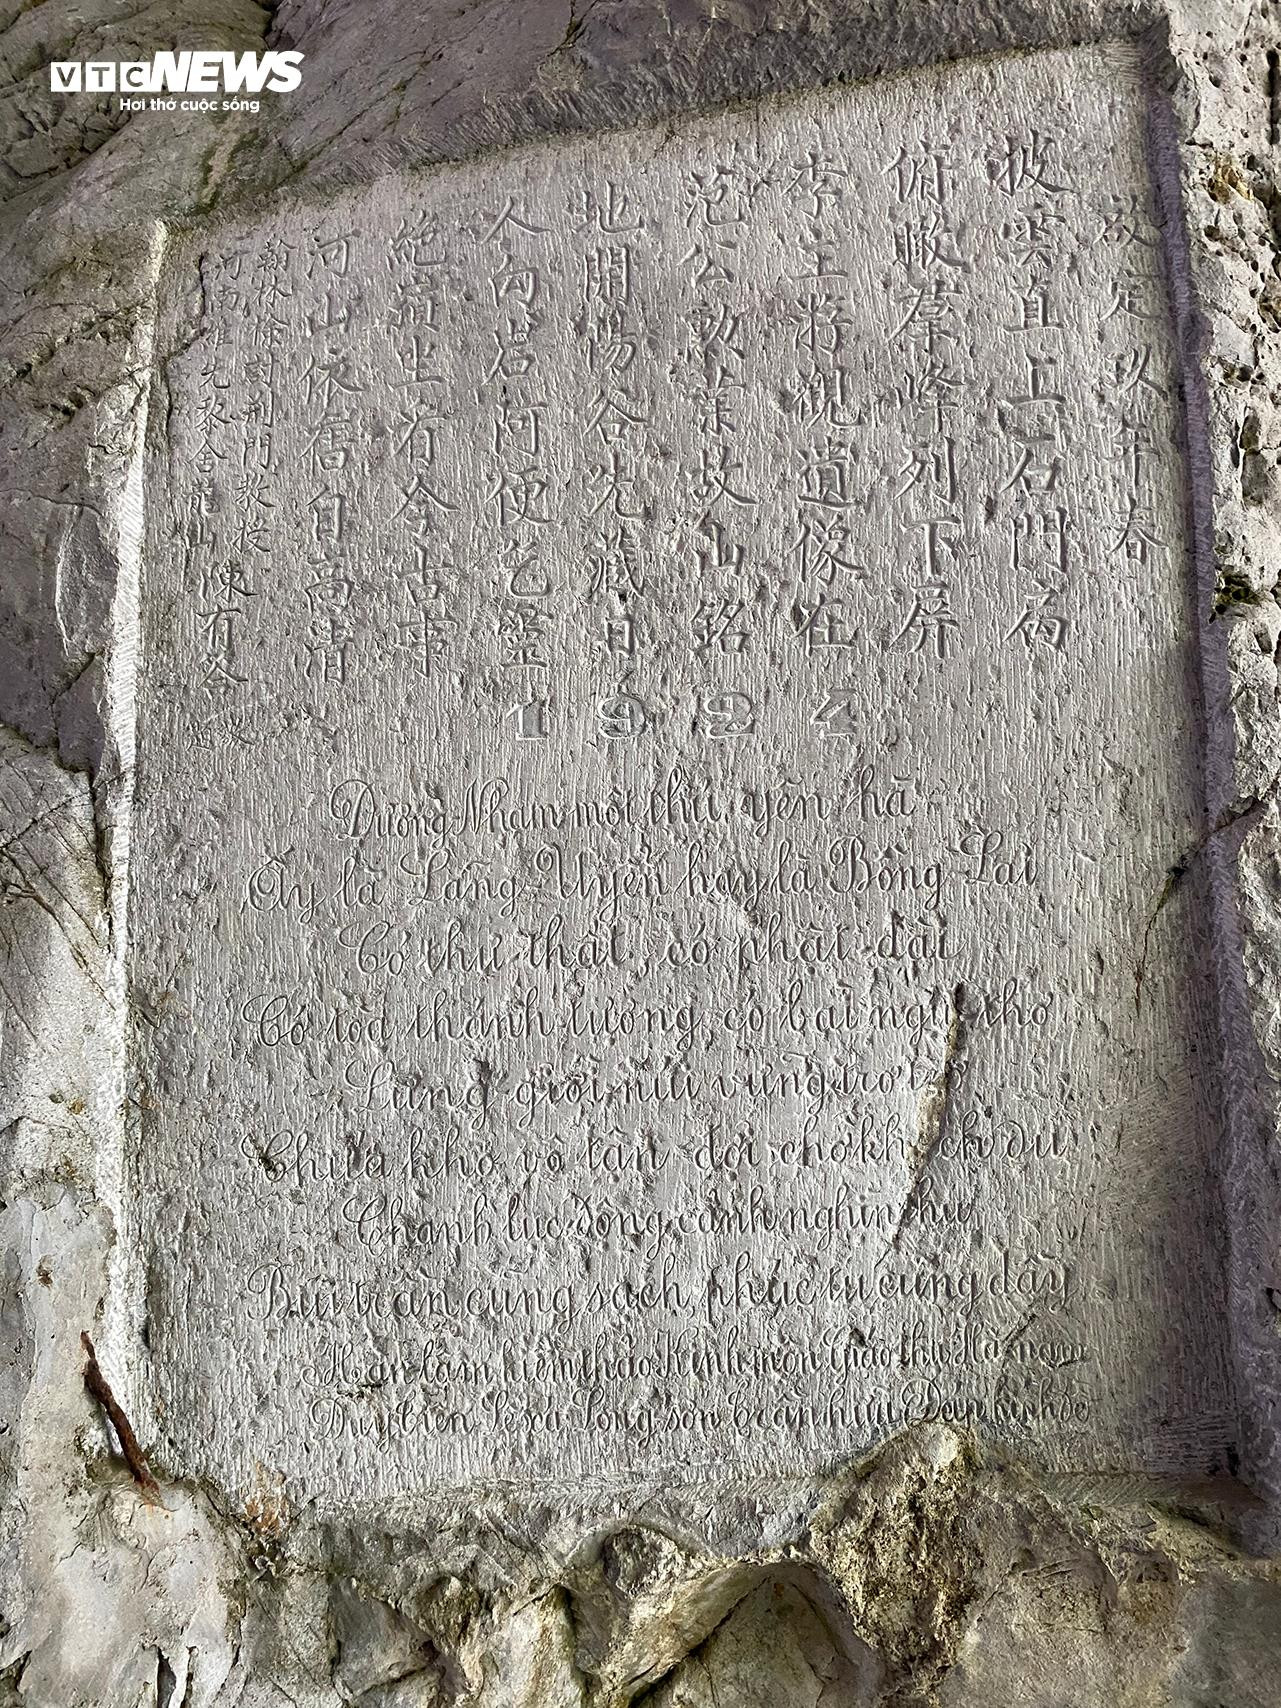 VTC NEWS
Hơi thở cuộc sống
啟定玖年春
披雲直上石門扃
俯瞰羣峰列下屏
李主游觀遺像在
范公勳業故山銘
地開暘谷先藏日
人向岩阿便乞靈
絶巘坐看今古事
河山依舊自高清
翰林檢討荊門教授
河南維先黎舍龍山 陳有答
1924
Dương Nham một thú yên hà
Ấy là Lãng Uyển hay là Bồng Lai
Có thư thất, có phật đài
Có tòa thánh tượng, có bài ngự thơ
Lưng giời núi vững trơ trơ
Chứa kho vô tận đợi chờ khách du
Chạnh lúc đông cảnh nghìn thu
Bụi trần cũng sạch, phúc tu cũng dầy
Hàn lâm kiểm thảo Kinh môn Giáo thụ Hà nam
Duy tiên Lê xá Long sơn Trần hữu Đáp kính đề